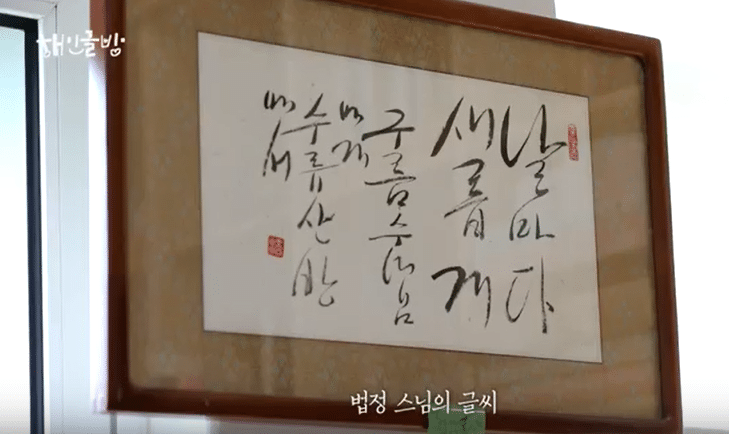 해인글방
날마다
새롭게
구름수좌님
수류산방
법정 스님의 글씨